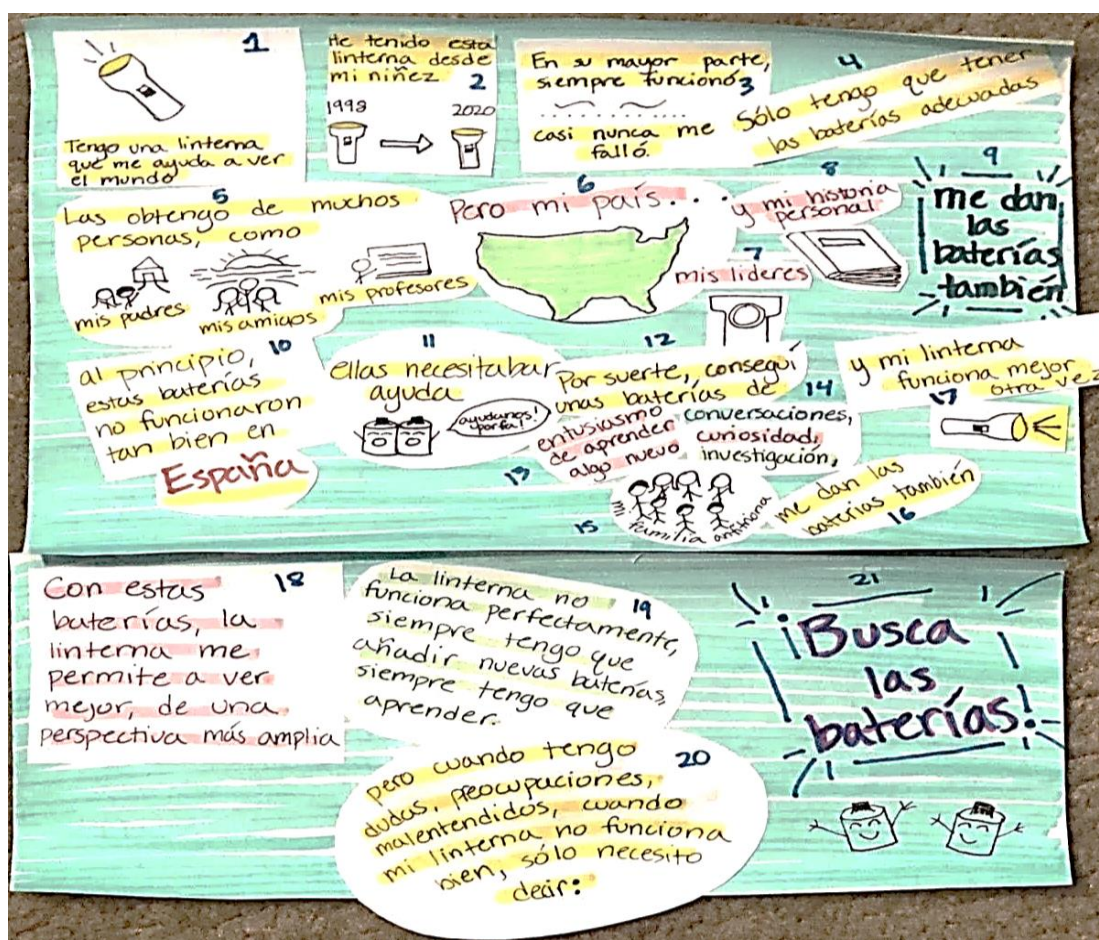 1
Tengo una linterna
que me ayuda a ver
el mundo
He tenido esta
linterna desde
mi niñez
2
1998
2020
En su mayor parte,
siempre funcionó
3
casi nunca me
falló.
4
Sólo tengo que tener
las baterías adecuadas
5
Las obtengo de muchos
personas, como
mis padres
mis amigos
mis profesores
6
Pero mi país...
7
mis lideres
8
y mi historia
personal
9
me dan
las
baterías
también
10
al principio,
estas baterías
no funcionaron
tan bien en
España
11
ellas necesitaban
ayuda
ayudanos!
porfa!
12
Por suerte, conseguí
unas baterías de
13
entusiasmo
de aprender
algo nuevo
14
conversaciones,
curiosidad,
investigación,
15
mi familia anfitriona
me dan las
baterías también
16
y mi linterna
funciona mejor
otra vez
17
18
Con estas
baterías, la
linterna me
permite a ver
mejor, de una
perspectiva más amplia
19
La linterna no
funciona perfectamente,
siempre tengo que
añadir nuevas baterías,
siempre tengo que
aprender.
20
pero cuando tengo
dudas, preocupaciones,
malentendidos, cuando
mi linterna no funciona
bien, sólo necesito
decir:
21
¡Busca
las
baterías!